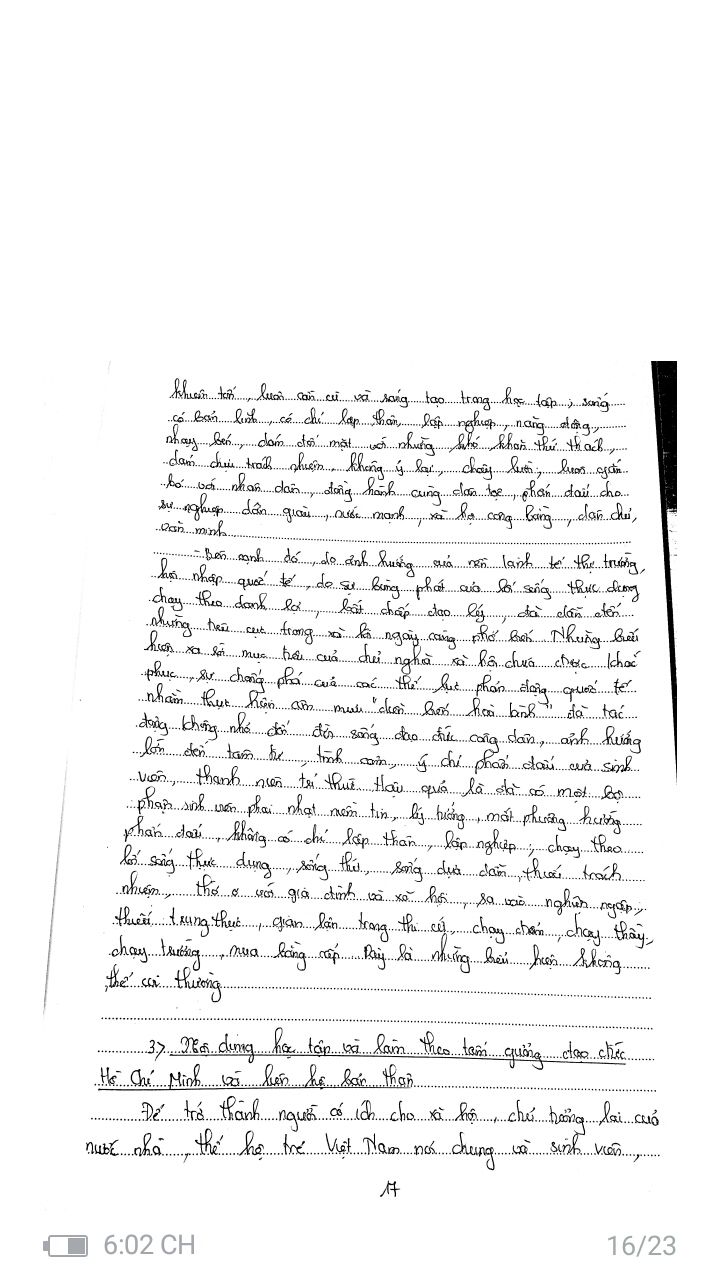 khiêm tốn, luôn cần cù và sáng tạo trong học tập; sống
có bản lĩnh, có chí lập thân, lập nghiệp, năng động,
nhạy bén, dám đối mặt với những khó khăn thử thách,
dám chịu trách nhiệm, không ỷ lại, chây lười, luôn gắn
bó với nhân dân, đồng hành cùng dân tộc, phấn đấu cho
sự nghiệp dân giàu, nước mạnh, xã hội công bằng, dân chủ,
văn minh
- Bên cạnh đó, do ảnh hưởng của nền kinh tế thị trường,
hội nhập quốc tế, do sự bùng phát của lối sống thực dụng
chạy theo danh lợi, bất chấp đạo lý, đã dẫn đến
những tiêu cực trong xã hội ngày càng phổ biến. Những biểu
hiện xa rời mục tiêu của chủ nghĩa xã hội chưa được khắc
phục, sự chống phá của các thế lực phản động quốc tế
nhằm thực hiện âm mưu "diễn biến hoà bình" đã tác
động không nhỏ đến đời sống đạo đức công dân, ảnh hưởng
lớn đến tâm tư, tình cảm, ý chí phấn đấu của sinh
viên, thanh niên trí thức. Hậu quả là đã có một bộ
phận sinh viên phai nhạt niềm tin, lý tưởng, mất phương hướng
phấn đấu, không có chí lập thân, lập nghiệp; chạy theo
lối sống thực dụng, sống thử, sống dựa dẫm, thiếu trách
nhiệm, thờ ơ với gia đình và xã hội, sa vào nghiện ngập,
thiếu trung thực, gian lận trong thi cử, chạy điểm, chạy thầy,
chạy trường, mua bằng cấp. Đây là những biểu hiện không
thể coi thường
3> Nội dung học tập và làm theo tấm gương đạo đức
Hồ Chí Minh và liên hệ bản thân
Để trở thành người có ích cho xã hội, chủ tương lai của
nước nhà, thế hệ trẻ Việt Nam nói chung và sinh viên,
17
6:02 CH
16/23